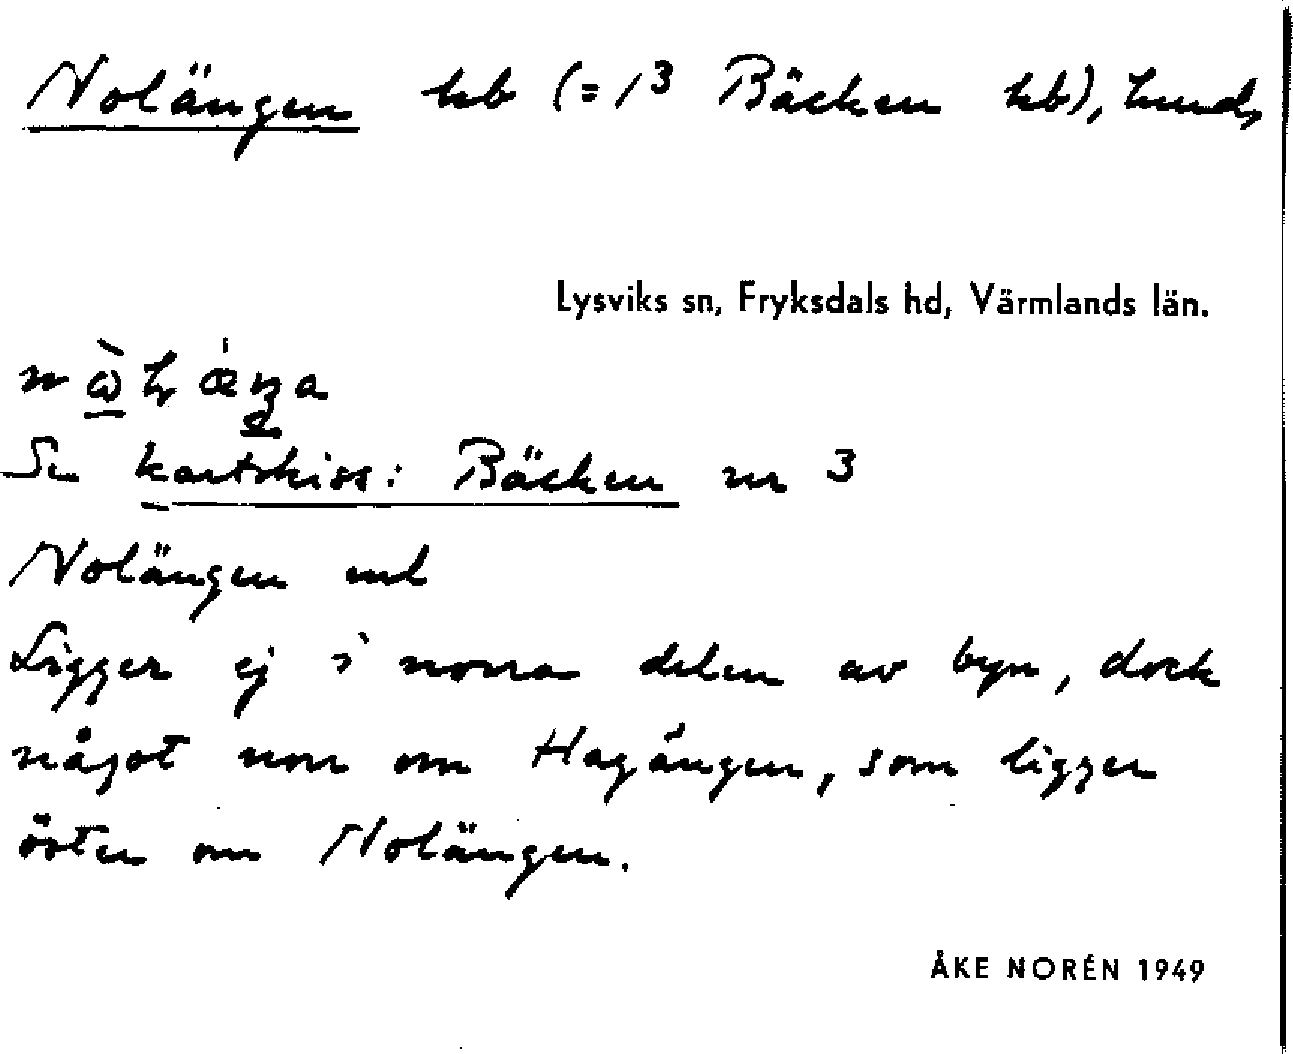 Nolängen hb (= /3 Bäcken hb), Lund,
Lysviks sn, Fryksdals hd, Värmlands län.
Se kartskiss: Bäcken nr 3
Nolängen ml
Ligger ej i norra delen av byn, dock
något norr om Hagängen, som ligger
öster om Nolängen.
ÅKE NORÉN 1949